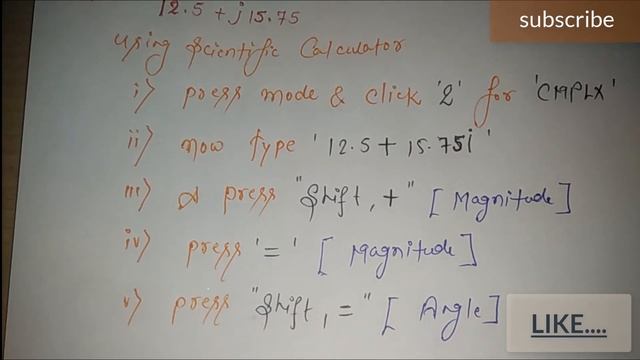 12.5 + j 15.75
subscribe
using scientific calculator
i) press mode & click '2' for 'CMPLX'
ii) now type '12.5 + 15.75i'
iii) & press "shift, +" [Magnitude]
iv) press '=' [Magnitude]
v) press "shift, =" [Angle]
LIKE....